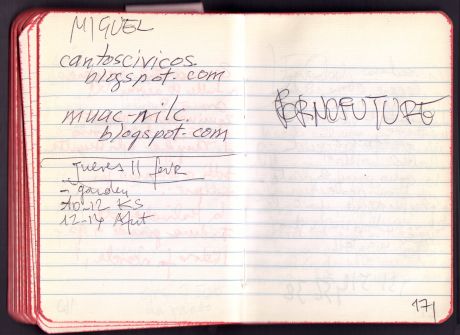 MIGUEL
cantoscivicos.
blogspot.com
muac-nilc.
blogspot.com
jueves 11 febr
- garden
10-12 KS
12-14 Aput
PORNOFUTURE
171